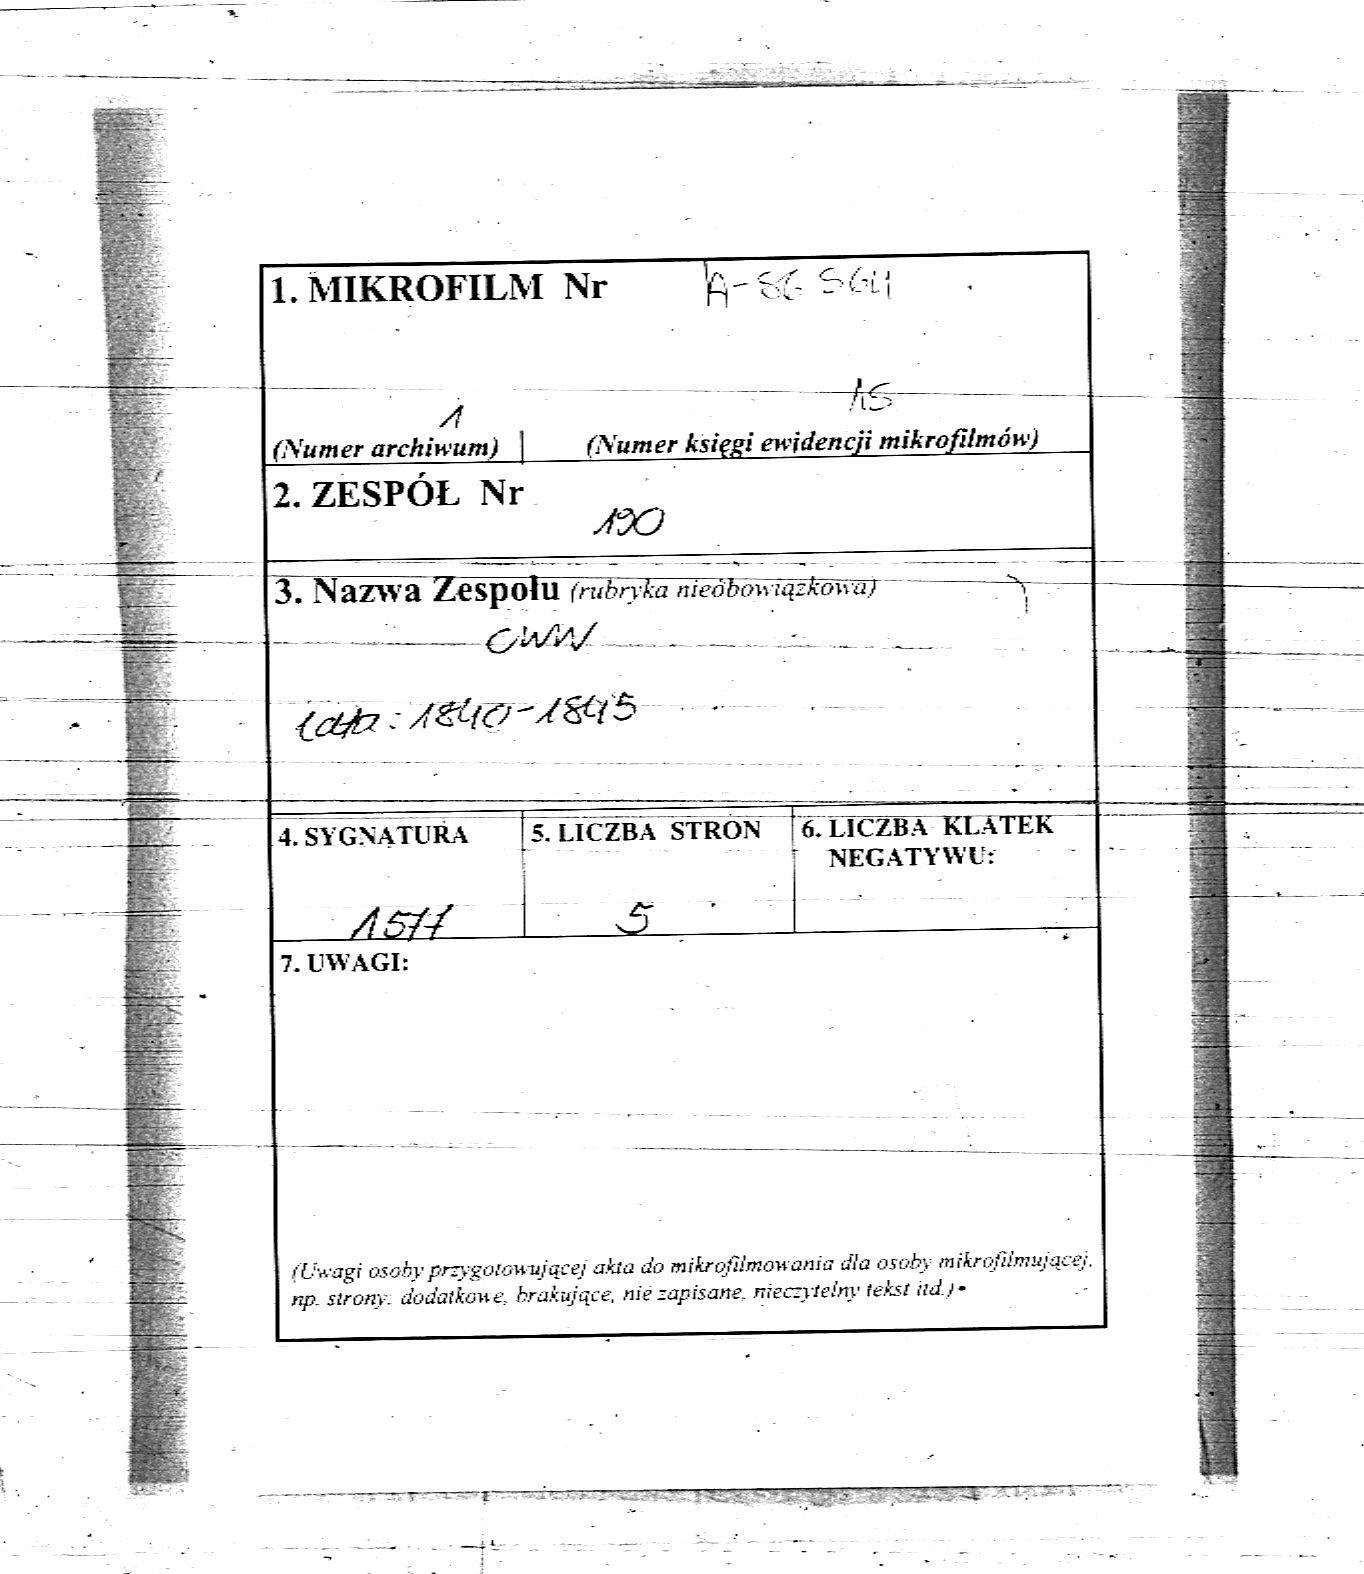 1. MIKROFILM Nr A-86 564
1 15
(Numer archiwum) (Numer księgi ewidencji mikrofilmów)
2. ZESPÓŁ Nr
190
3. Nazwa Zespołu (rubryka nieobowiązkowa)
CWW
lata: 1840-1845
4. SYGNATURA 5. LICZBA STRON 6. LICZBA KLATEK
NEGATYWU:
1577 5
7. UWAGI:
(Uwagi osoby przygotowującej akta do mikrofilmowania dla osoby mikrofilmującej,
np. strony: dodatkowe, brakujące, nie zapisane, nieczytelny tekst itd.)